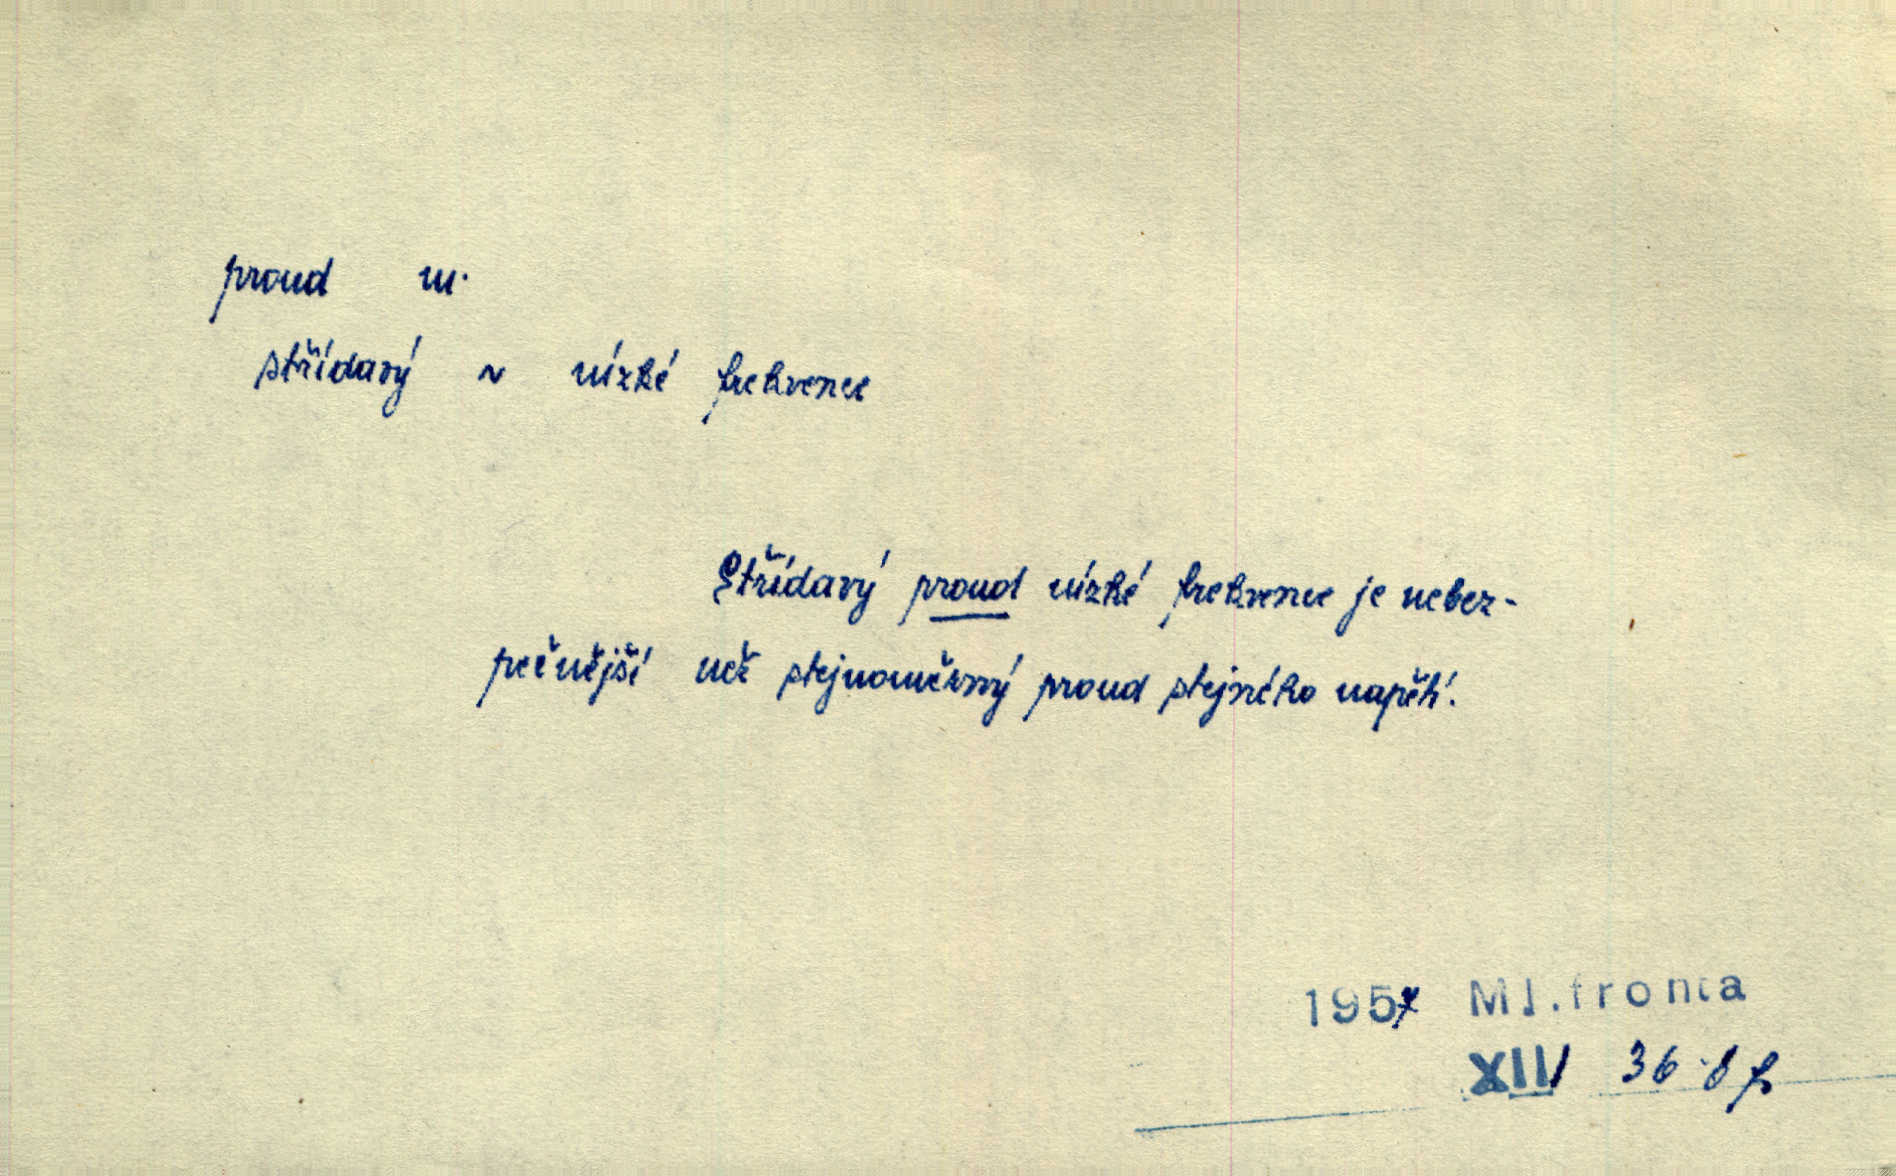 proud m.
střídavý ~ nízké frekvence
Střídavý proud nízké frekvence je nebez-
pečnější než stejnoměrný proud stejného napětí.
1957 Ml.fronta
XIII 36